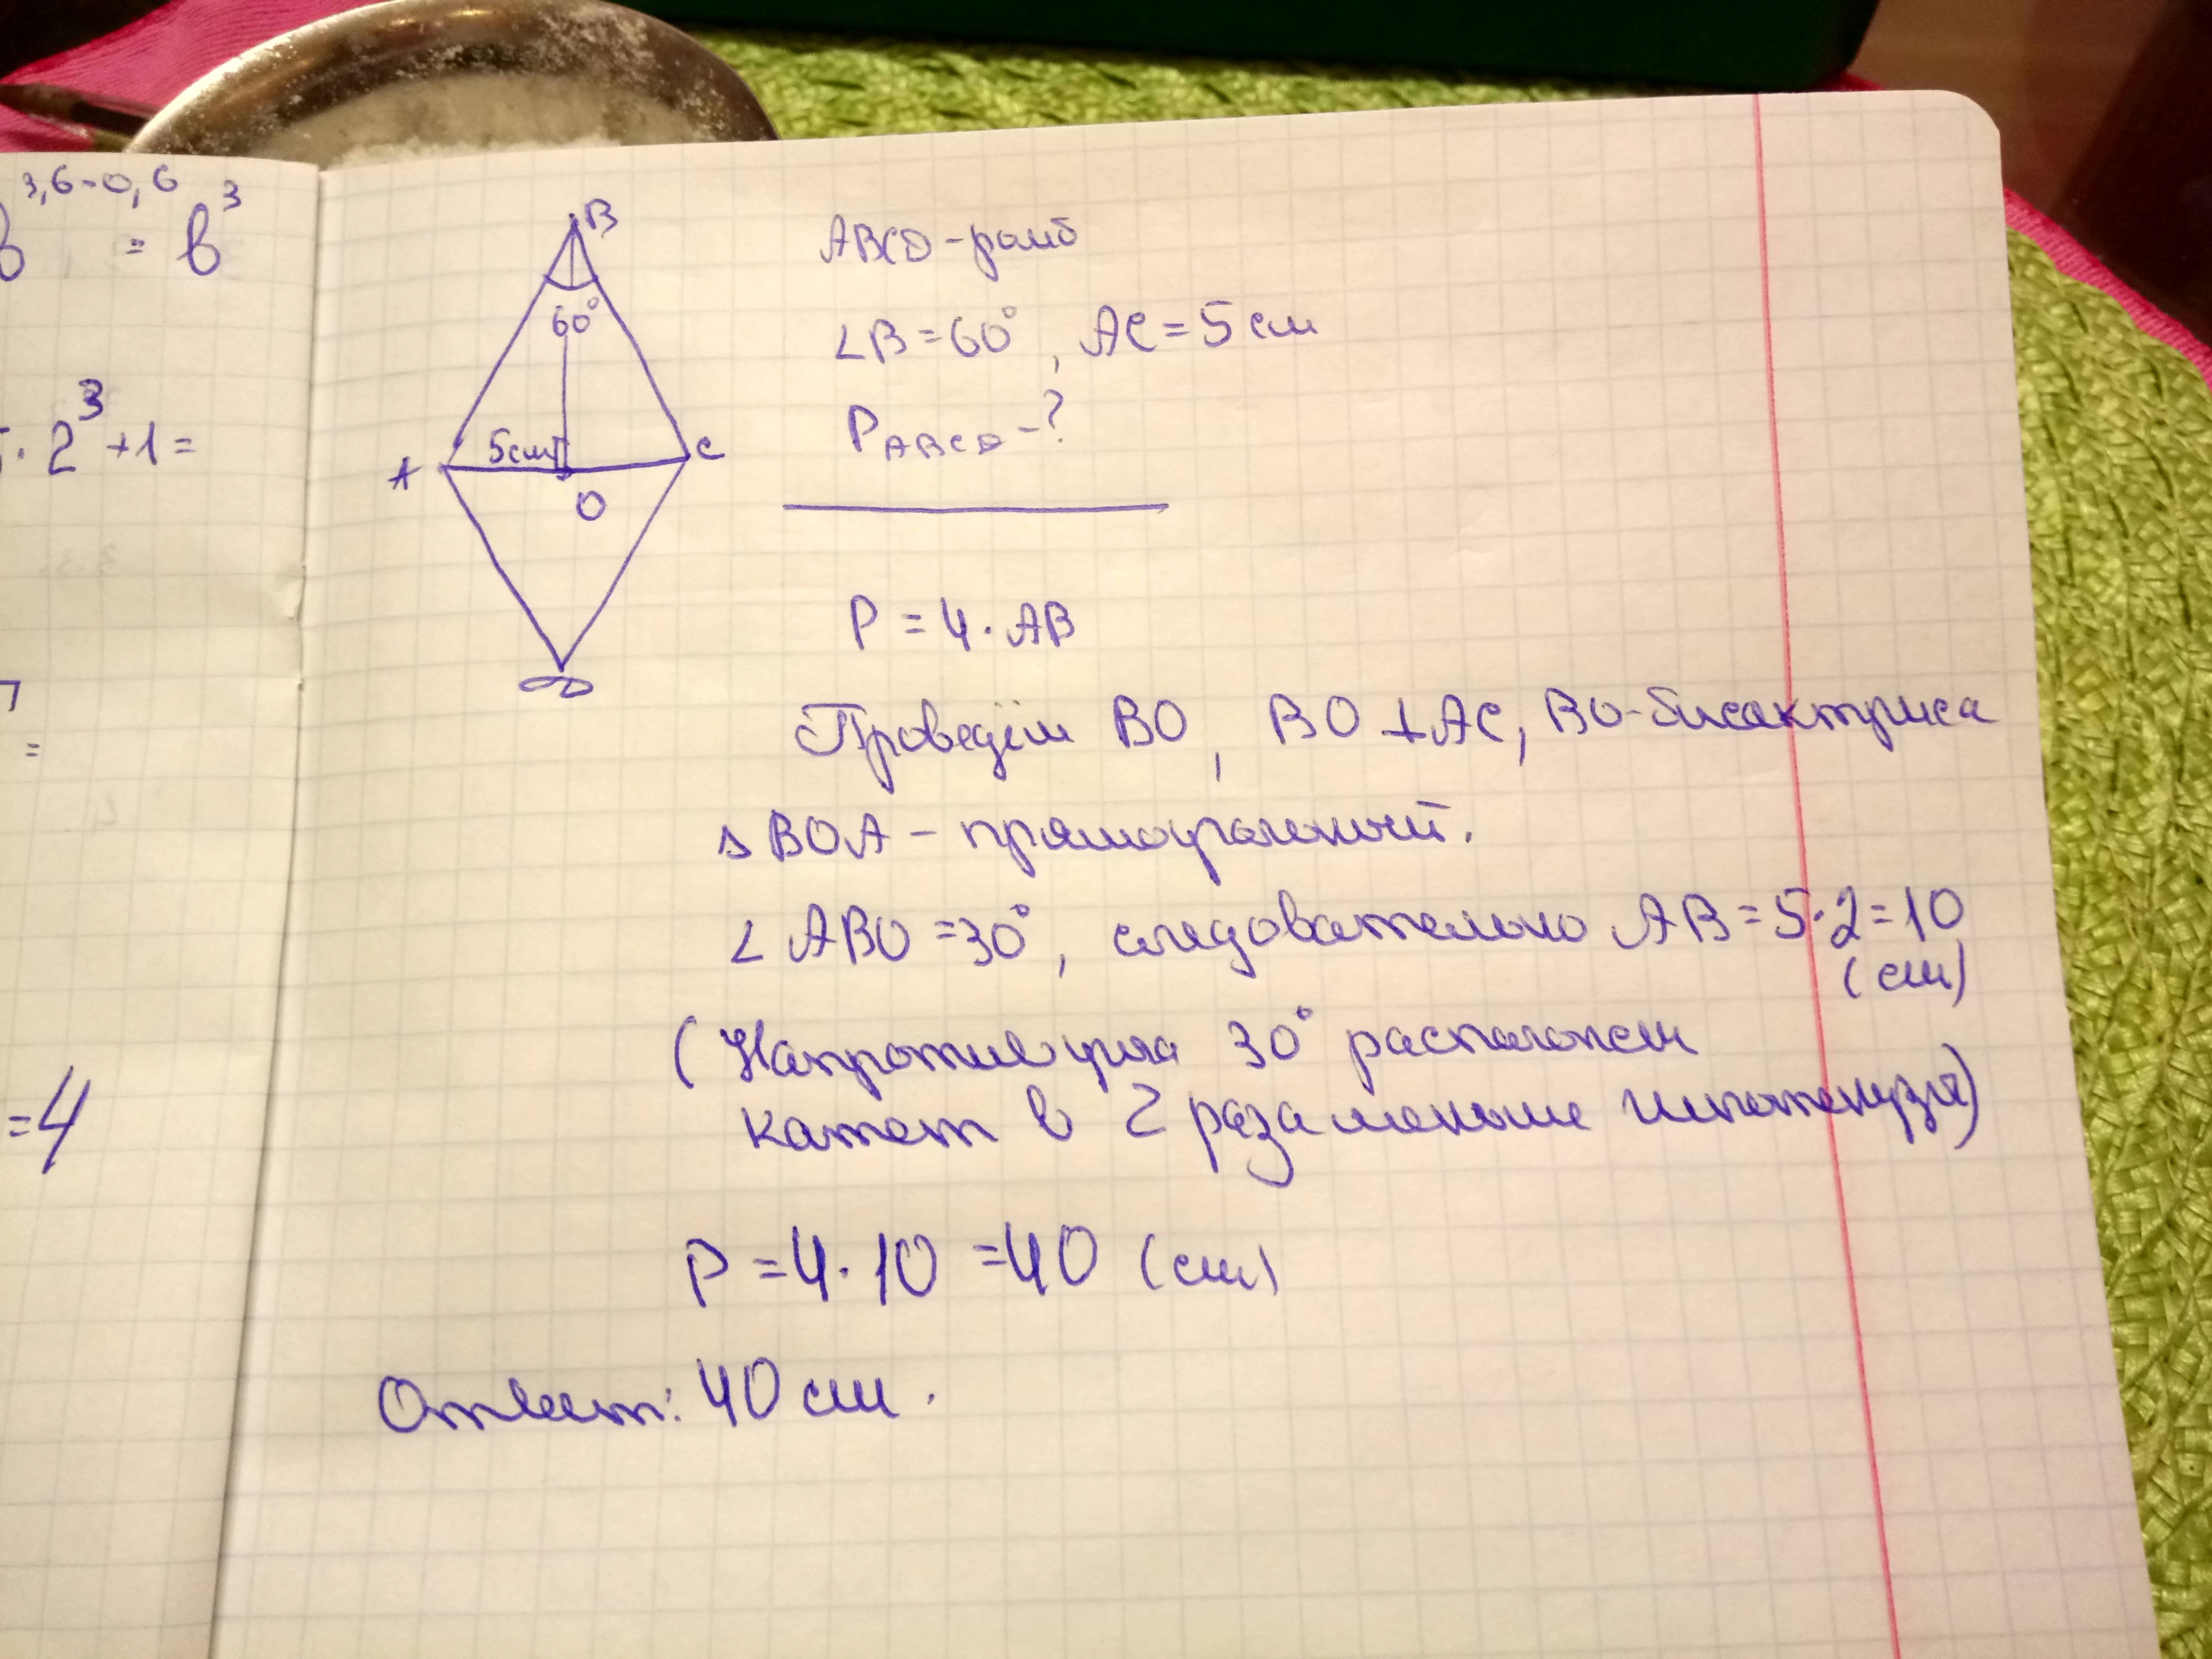 3,6-0,6 3
b = b
3
5 · 2 + 1 =
=
= 4
B
60°
5см
A
C
O
D
ABCD - ромб
∠B = 60°, AC = 5 см
P ABCD - ?
P = 4 · AB
Проведём BO, BO ⊥ AC, BO - биссектриса
△ BOA - прямоугольный.
∠ ABO = 30°, следовательно AB = 5 · 2 = 10
(см)
(Напротив угла 30° расположен
катет в 2 раза меньше гипотенузы)
P = 4 · 10 = 40 (см)
Ответ: 40 см.